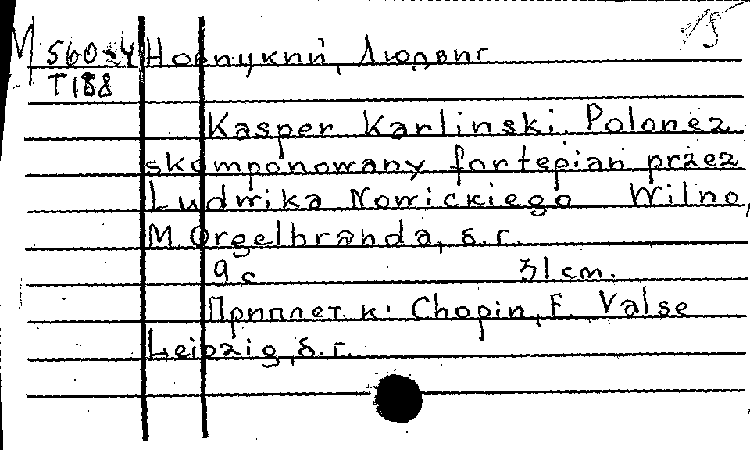 15
М 560-4 Новицкий, Людвиг
T188
Kasper Karlinski. Polonez
skomponowany fortepian przez
Ludwika Nowickiego Wilno,
M. Orgelbranda, б.г.
9 с 31 cm.
Приплет к: Chopin, F. Valse
Leipzig, б.г.